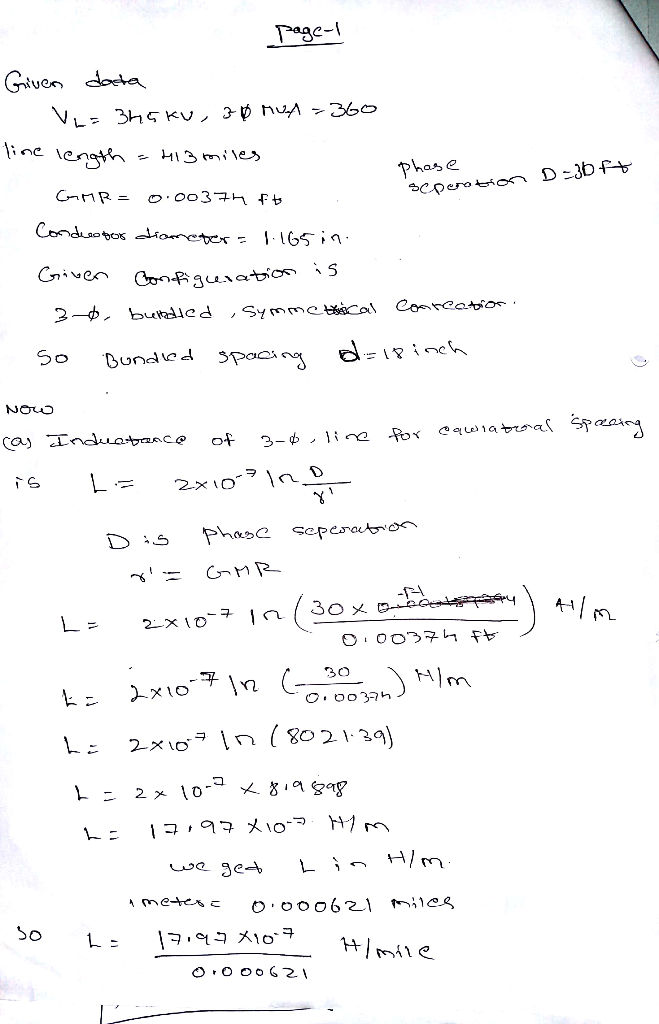 Page-1
Given data
VL = 345 KV, 3φ MVA = 360
line length = 413 miles
phase seperation D = 30 ft
GMR = 0.00374 ft
Conductor diameter = 1.165 in.
Given Configuration is
3-φ, bundled, symmetrical
So Bundled spacing d = 18 inch
NOW
(a) Inductance of 3-φ, line for equilateral spacing
is L = 2×10⁻⁷ ln D/r'
D is phase seperation
r' = GMR
L = 2×10⁻⁷ ln (30 × ft / 0.00374 ft) H/m
L = 2×10⁻⁷ ln (30 / 0.00374) H/m
L = 2×10⁻⁷ ln (8021.39)
L = 2×10⁻⁷ × 8.9898
L = 17.97 ×10⁻⁷ H/m
we get L in H/m.
1 meter = 0.000621 miles
so L = 17.97 ×10⁻⁷ / 0.000621 H/mile